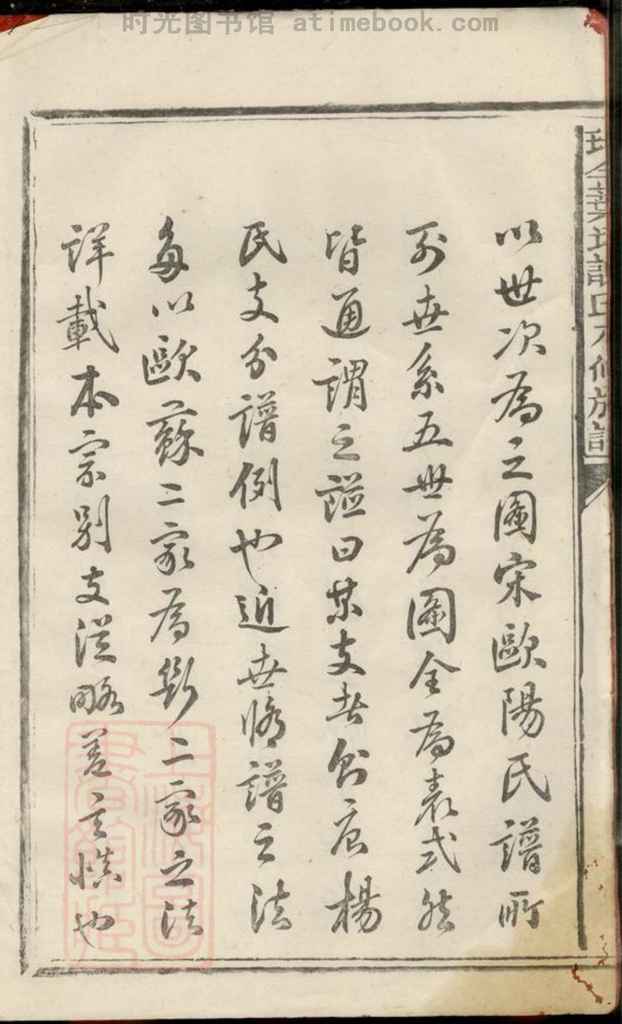 时光图书馆 atimebook.com
以世次為之圖宋歐陽氏譜所
列世系五世為圖全為表式然
皆通謂之譜曰某支者則唐楊
氏支分譜例也近世修譜之法
多以歐蘇二家為斷二家之法
詳載本宗別支從略蓋言慎也